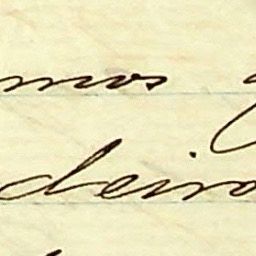 mos
deiro